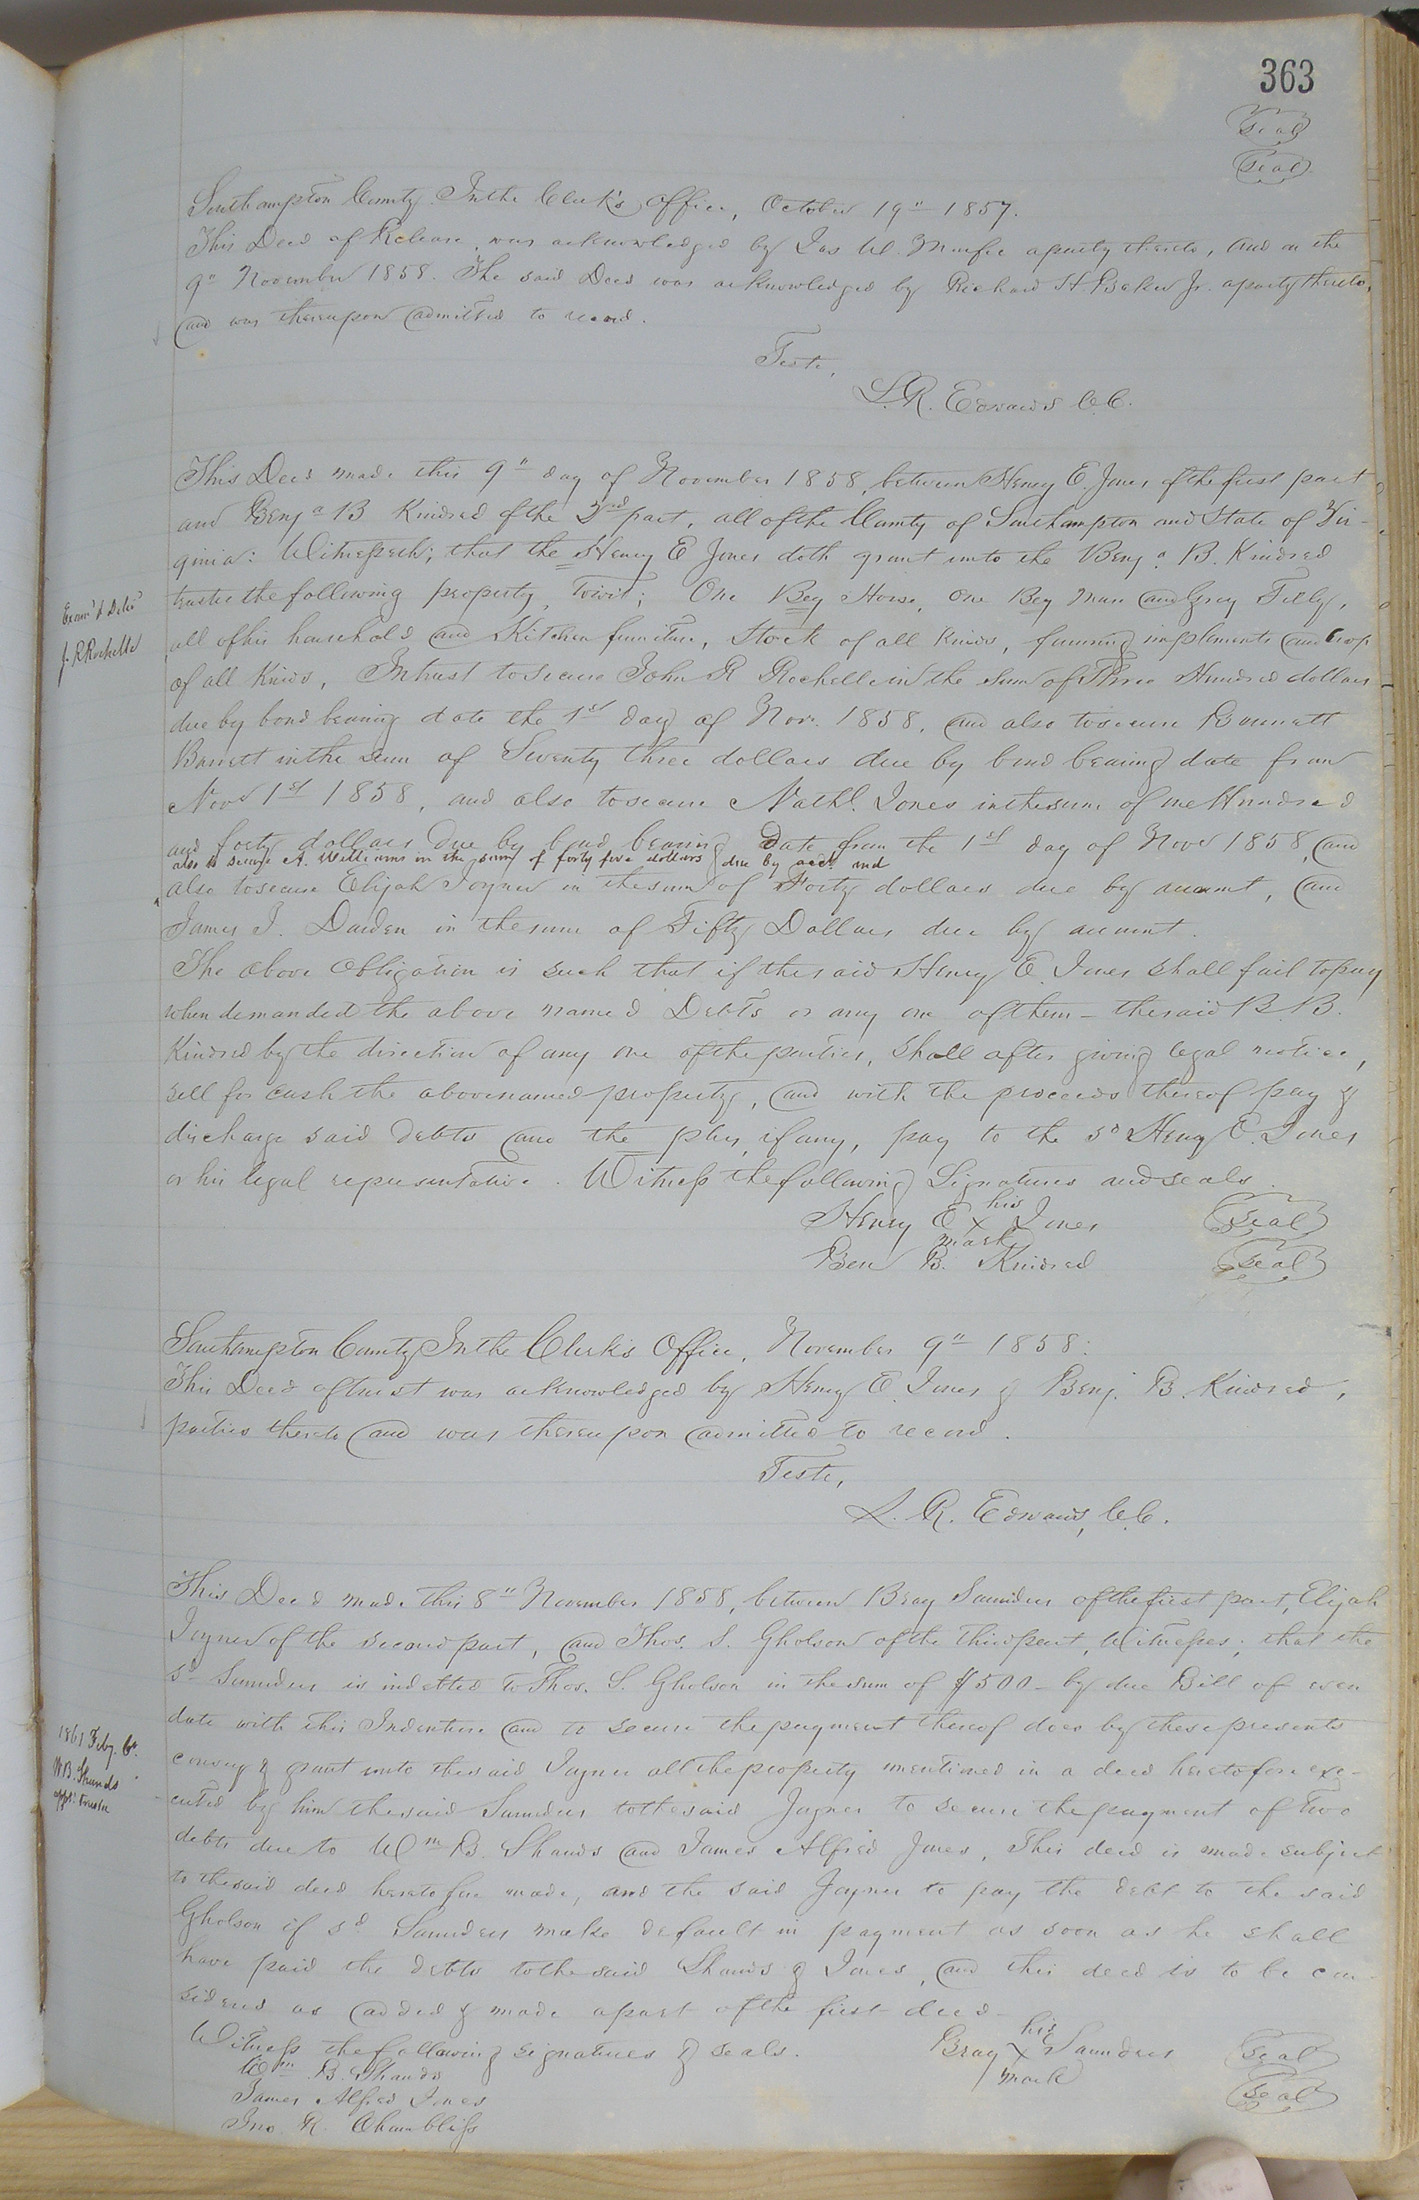 363
Seal
Seal
Southampton County. In the Clerk's Office, October 19" 1857.
This Deed of Release, was acknowledged by Jas W. Murfee a party thereto, and on the
9" November 1858. The said Deed was acknowledged by Richard H Baker Jr. a party thereto,
and was thereupon admitted to record.
Teste,
L. R. Edwards C.C.
This Deed made this 9" day of November 1858, between Henry E. Jones of the first part
and Benja B Kindred of the 2nd part, all of the County of Southampton and State of Vir-
ginia: Witnesseth; that the Henry E Jones doth grant unto the Benja B. Kindred
trustee the following property, Towit; One Bay Horse, One Bay Mare and Gray Filly,
Exam'd & Delv'd
J. R Rochelle
all of his household and Kitchen furniture, Stock of all Kinds, farming implements and Crop
of all Kinds, In trust to secure John R Rochelle in the Sum of Three Hundred dollars
due by bond bearing date the 1st day of Nov. 1858, and also to secure Bennett
Barrett in the sum of Seventy three dollars due by bond bearing date from
Novr 1st 1858, and also to secure Nathl. Jones in the sum of one Hundred
and forty dollars due by bond bearing Date from the 1st day of Novr 1858, and
also to secure A. Williams in the sum of forty five dollars due by acct. and
also to secure Elijah Joyner in the sum of Forty dollars due by account, and
James J. Darden in the sum of Fifty Dollars due by account.
The above Obligation is such that if the said Henry E. Jones shall fail to pay
when demanded the above named Debts or any one of them - the said B. B.
Kindred by the direction of any one of the parties, shall after giving legal notice,
sell for cash the above named property, and with the proceeds thereof pay &
discharge said debts and the plus, if any, pay to the sd Henry E. Jones
or his legal representative. Witness the following Signatures and seals.
Henry E his x mark Jones Seal
Ben B. Kindred Seal
Southampton County In the Clerk's Office, November 9" 1858:
This Deed of trust was acknowledged by Henry E. Jones & Benj. B. Kindred,
parties thereto and was thereupon admitted to record.
Teste,
L. R. Edwards, C.C.
This Deed made this 8" November 1858, between Bray Saunders of the first part, Elijah
Joyner of the second part, and Thos. S. Gholson of the third part, Witnesses; that the
sd Saunders is indebted to Thos. S. Gholson in the sum of $500 - by due Bill of even
date with this Indenture and to secure the payment thereof does by these presents
1861 Feby. 6th
W. B. Shands
appt. trustee
convey & grant unto the said Joyner all the property mentioned in a deed heretofore exe-
cuted by him the said Saunders to the said Joyner to secure the payment of two
debts due to Wm B. Shands and James Alfred Jones, This deed is made subject
to the said deed heretofore made, and the said Joyner to pay the debt to the said
Gholson if sd Saunders make default in payment as soon as he shall
have paid the debts to the said Shands & Jones, and this deed is to be con-
sidered as added & made a part of the first deed -
Witness the following signatures & seals.
Bray his x mark Saunders Seal
Seal
Wm B. Shands
James Alfred Jones
Jno. R. Chambliss